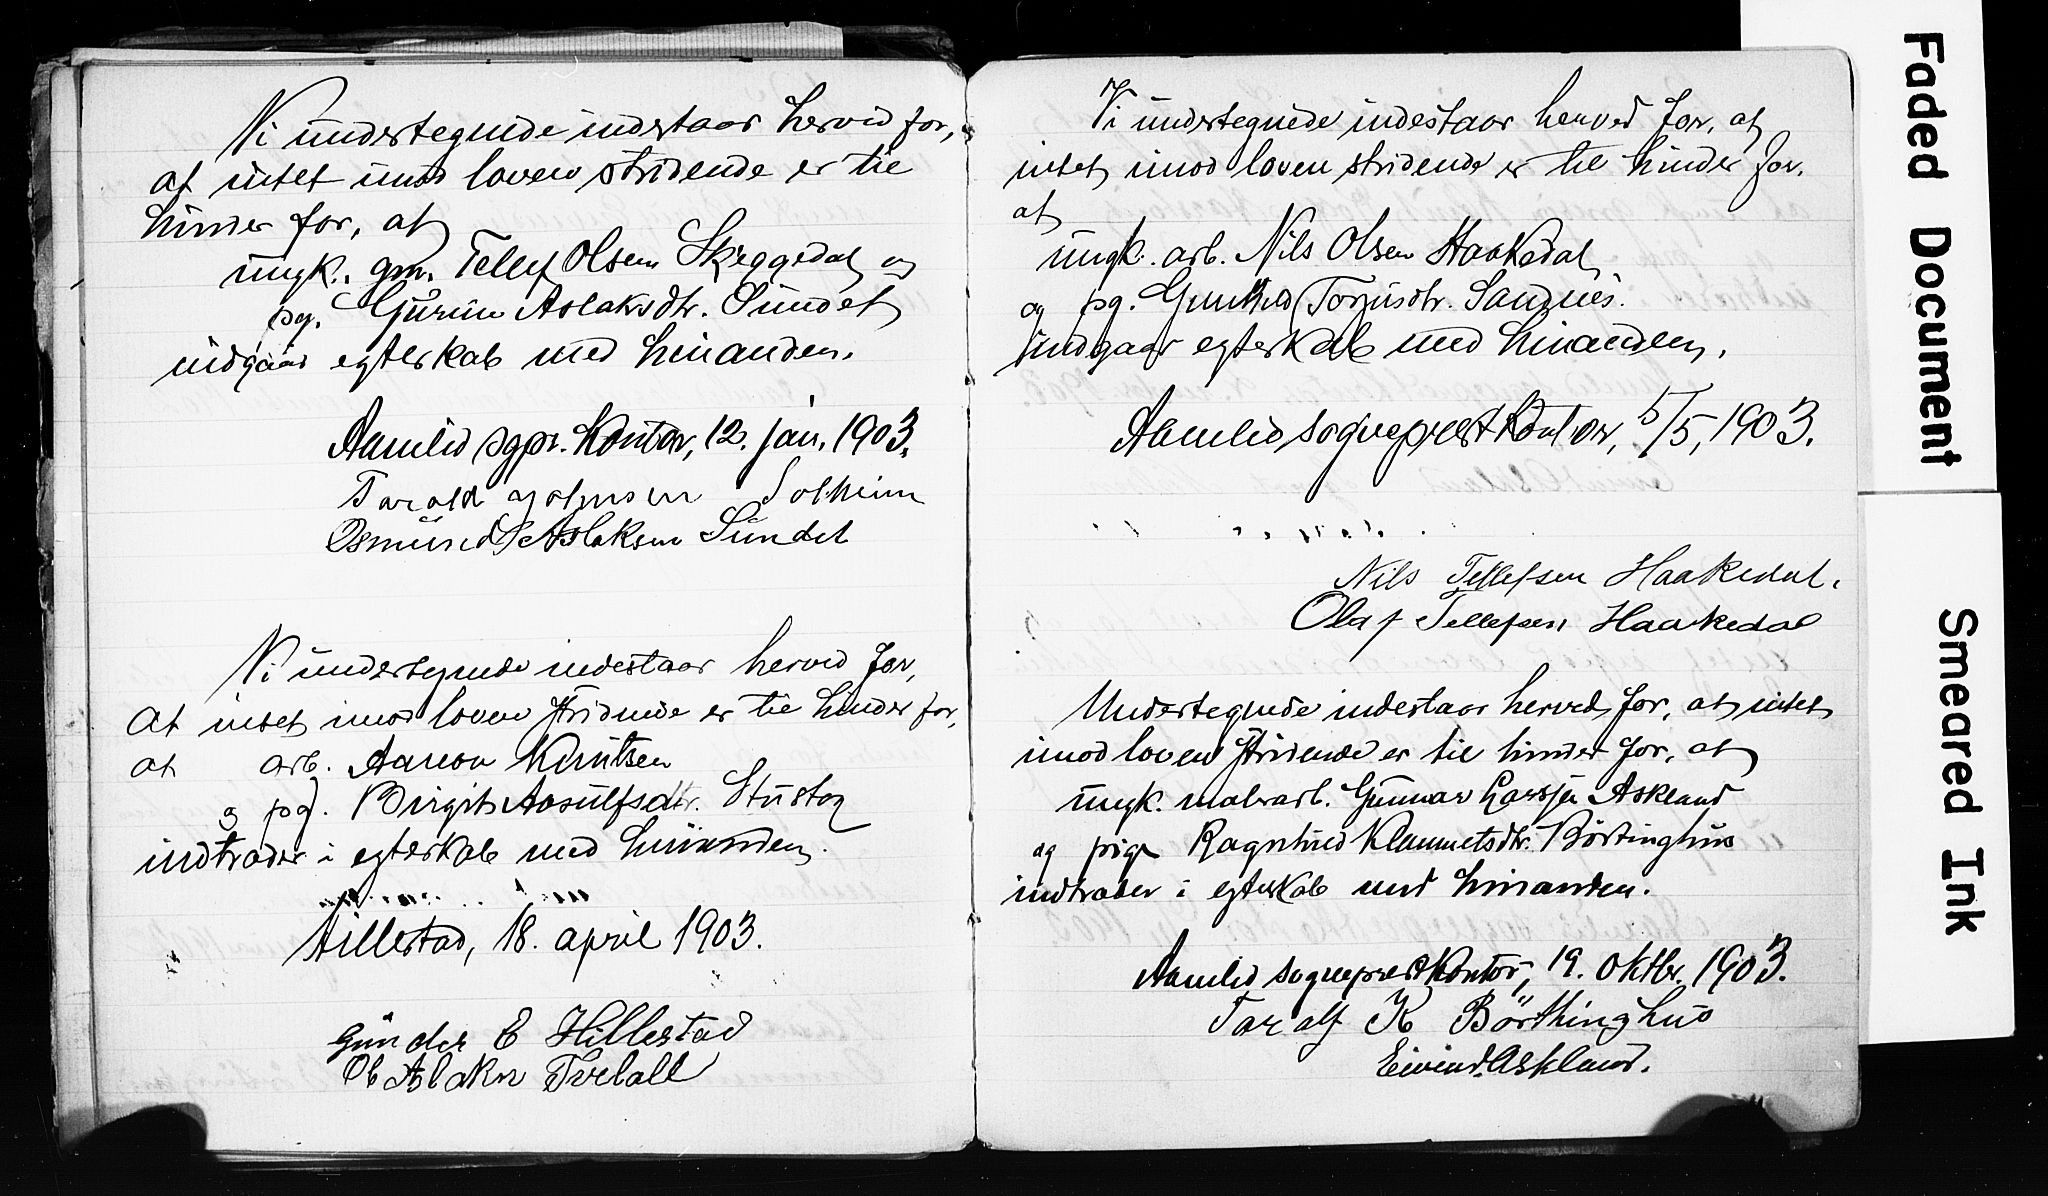 Vi undertegnede indestaar herved for,
at intet imod loven stridende er til
hinder for, at
ungk. gm. Tellef Olsen Skeggedal og
pg. Gurun Aslaksdtr. Sundet
indgaar egteskab med hinanden.
Aamlid sgpr. Kontor, 12. jan. 1903.
Tarald Solheim
Osmund Aslaksen Sundet
Vi undertegnede indestaar herved for,
at intet imod loven stridende er til hinder for,
at arb. Aanon Knutsen
og pg. Birgit Aasulfsdtr. Stustøg
indtræder i egteskab med hinanden.
Hillestad, 18. april 1903.
Gunder E Hillestad
Ol Aslaksn Tvelall
Vi undertegnede indestaar herved for, at
intet imod loven stridende er til hinder for,
at
ungk. arb. Nils Olsen Haakedal
og pg. Gunhild Torjusdtr. Sandnes.
indgaar egteskab med hinanden.
Aamlid sogneprestkontor, 5/5, 1903.
Nils Tellefsen Haakedal.
Olaf Tellefsen Haakedal
Undertegnede indestaar herved for, at intet
imod loven stridende er til hinder for, at
ungk. malerarb. Gunnar Askland
og pige Ragnhild Klemmetsdtr. Børtinghus
indtræder i egteskab med hinanden.
Aamlid sogneprestkontor, 19. oktbr. 1903.
Taralf K Börthinghus
Eivind Askland.
Faded Document
Smeared Ink